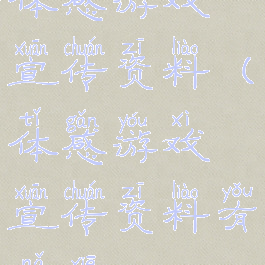 体感游戏
xuān chuán zī liào
宣传资料（
tǐ gǎn yóu xì
体感游戏
xuān chuán zī liào yǒu
宣传资料有